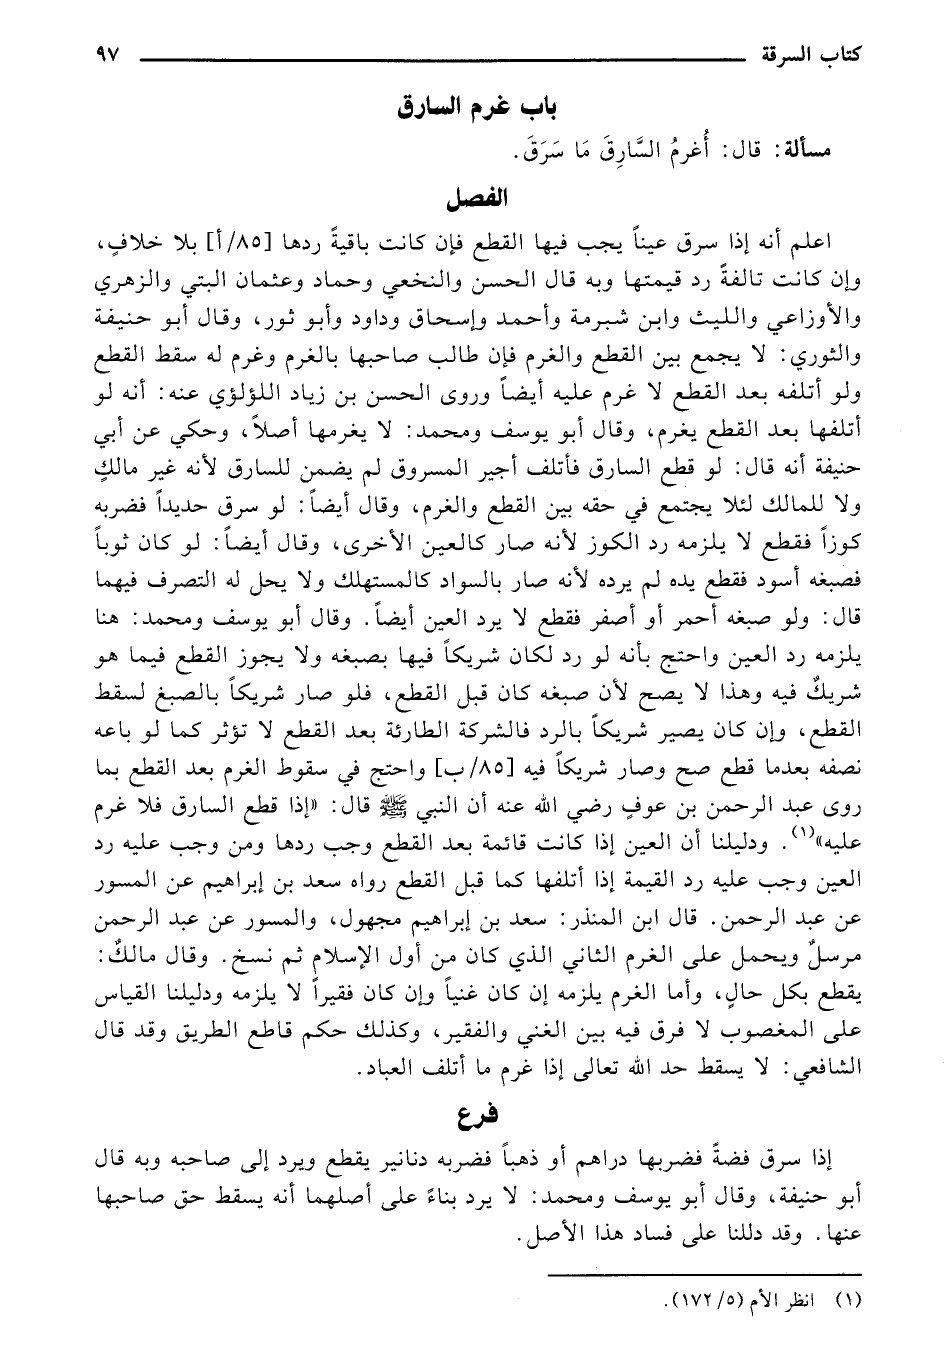 كتاب السرقة ٩٧
باب غرم السارق
مسألة: قال: أُغرمُ السَّارِقَ مَا سَرَقَ.
الفصل
اعلم أنه إذا سرق عيناً يجب فيها القطع فإن كانت باقيةً ردها [٨٥/أ] بلا خلافٍ،
وإن كانت تالفةً رد قيمتها وبه قال الحسن والنخعي وحماد وعثمان البتي والزهري
والأوزاعي والليث وابن شبرمة وأحمد وإسحاق وداود وأبو ثور، وقال أبو حنيفة
والثوري: لا يجمع بين القطع والغرم فإن طالب صاحبها بالغرم وغرم له سقط القطع
ولو أتلفه بعد القطع لا غرم عليه أيضاً وروى الحسن بن زياد اللؤلؤي عنه: أنه لو
أتلفها بعد القطع يغرم، وقال أبو يوسف ومحمد: لا يغرمها أصلاً، وحكي عن أبي
حنيفة أنه قال: لو قطع السارق فأتلف أجير المسروق لم يضمن للسارق لأنه غير مالكٍ
ولا للمالك لئلا يجتمع في حقه بين القطع والغرم، وقال أيضاً: لو سرق حديداً فضربه
كوزاً فقطع لا يلزمه رد الكوز لأنه صار كالعين الأخرى، وقال أيضاً: لو كان ثوباً
فصبغه أسود فقطع يده لم يرده لأنه صار بالسواد كالمستهلك ولا يحل له التصرف فيهما
قال: ولو صبغه أحمر أو أصفر فقطع لا يرد العين أيضاً. وقال أبو يوسف ومحمد: هنا
يلزمه رد العين واحتج بأنه لو رد لكان شريكاً فيها بصبغه ولا يجوز القطع فيما هو
شريكٌ فيه وهذا لا يصح لأن صبغه كان قبل القطع، فلو صار شريكاً بالصبغ لسقط
القطع، وإن كان يصير شريكاً بالرد فالشركة الطارئة بعد القطع لا تؤثر كما لو باعه
نصفه بعدما قطع صح وصار شريكاً فيه [٨٥/ب] واحتج في سقوط الغرم بعد القطع بما
روى عبد الرحمن بن عوفٍ رضي الله عنه أن النبي ﷺ قال: «إذا قطع السارق فلا غرم
عليه»(١). ودليلنا أن العين إذا كانت قائمة بعد القطع وجب ردها ومن وجب عليه رد
العين وجب عليه رد القيمة إذا أتلفها كما قبل القطع رواه سعد بن إبراهيم عن المسور
عن عبد الرحمن. قال ابن المنذر: سعد بن إبراهيم مجهول، والمسور عن عبد الرحمن
مرسلٌ ويحمل على الغرم الثاني الذي كان من أول الإسلام ثم نسخ. وقال مالكٌ:
يقطع بكل حالٍ، وأما الغرم يلزمه إن كان غنياً وإن كان فقيراً لا يلزمه ودليلنا القياس
على المغصوب لا فرق فيه بين الغني والفقير، وكذلك حكم قاطع الطريق وقد قال
الشافعي: لا يسقط حد الله تعالى إذا غرم ما أتلف العباد.
فرع
إذا سرق فضةً فضربها دراهم أو ذهباً فضربه دنانير يقطع ويرد إلى صاحبه وبه قال
أبو حنيفة، وقال أبو يوسف ومحمد: لا يرد بناءً على أصلهما أنه يسقط حق صاحبها
عنها. وقد دللنا على فساد هذا الأصل.
(١) انظر الأم (٥/ ١٧٢).